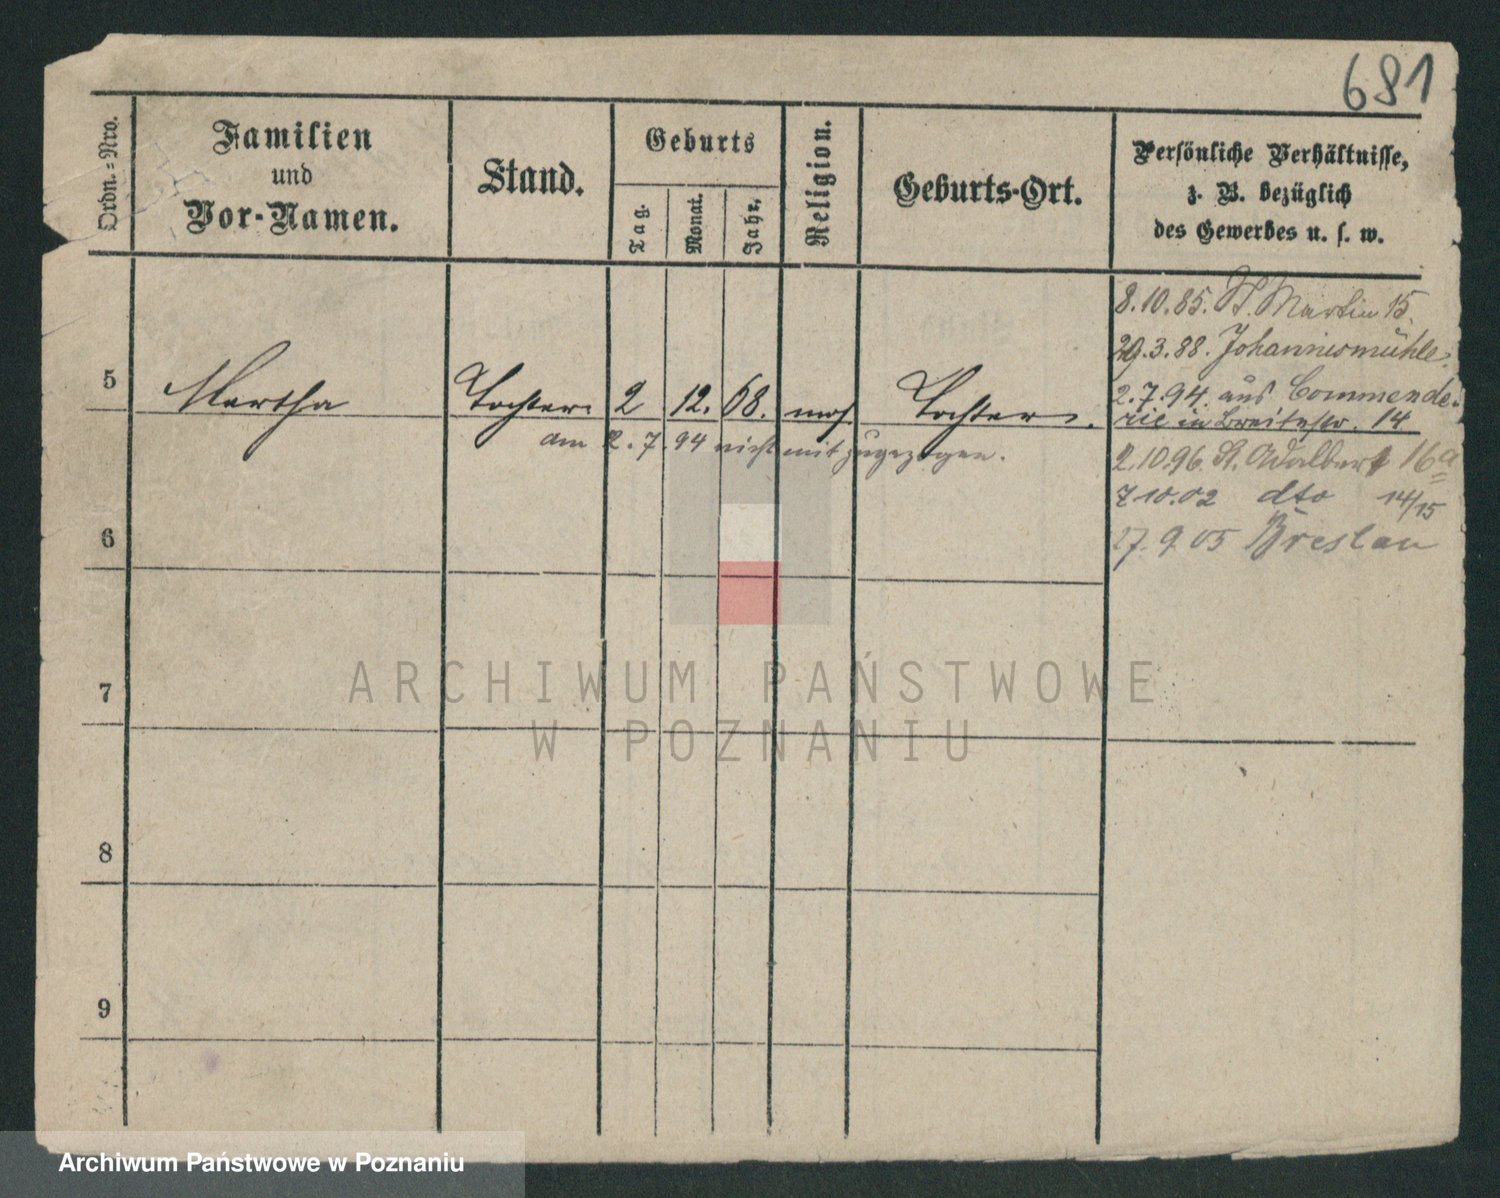 681
Ordn.=Nro.
Familien
und
Vor-Namen.
Stand.
Geburts
Tag.
Monat.
Jahr.
Religion.
Geburts-Ort.
Persönliche Verhältnisse,
z. B. bezüglich
des Gewerbes u. s. w.
8.10.85. St. Martin 15.
29.3.88. Johannismühle.
5 Martha Tochter 2 12. 68. mos.
2.7.94. aus Commende-
rie in Breitestr. 14
am 2.7.94 nicht mit zugezogen.
2.10.96. St. Adalbert 16a
7.10.02 dto 14/15
6
27.9.05 Breslau
7
ARCHIWUM PAŃSTWOWE
W POZNANIU
8
9
Archiwum Państwowe w Poznaniu